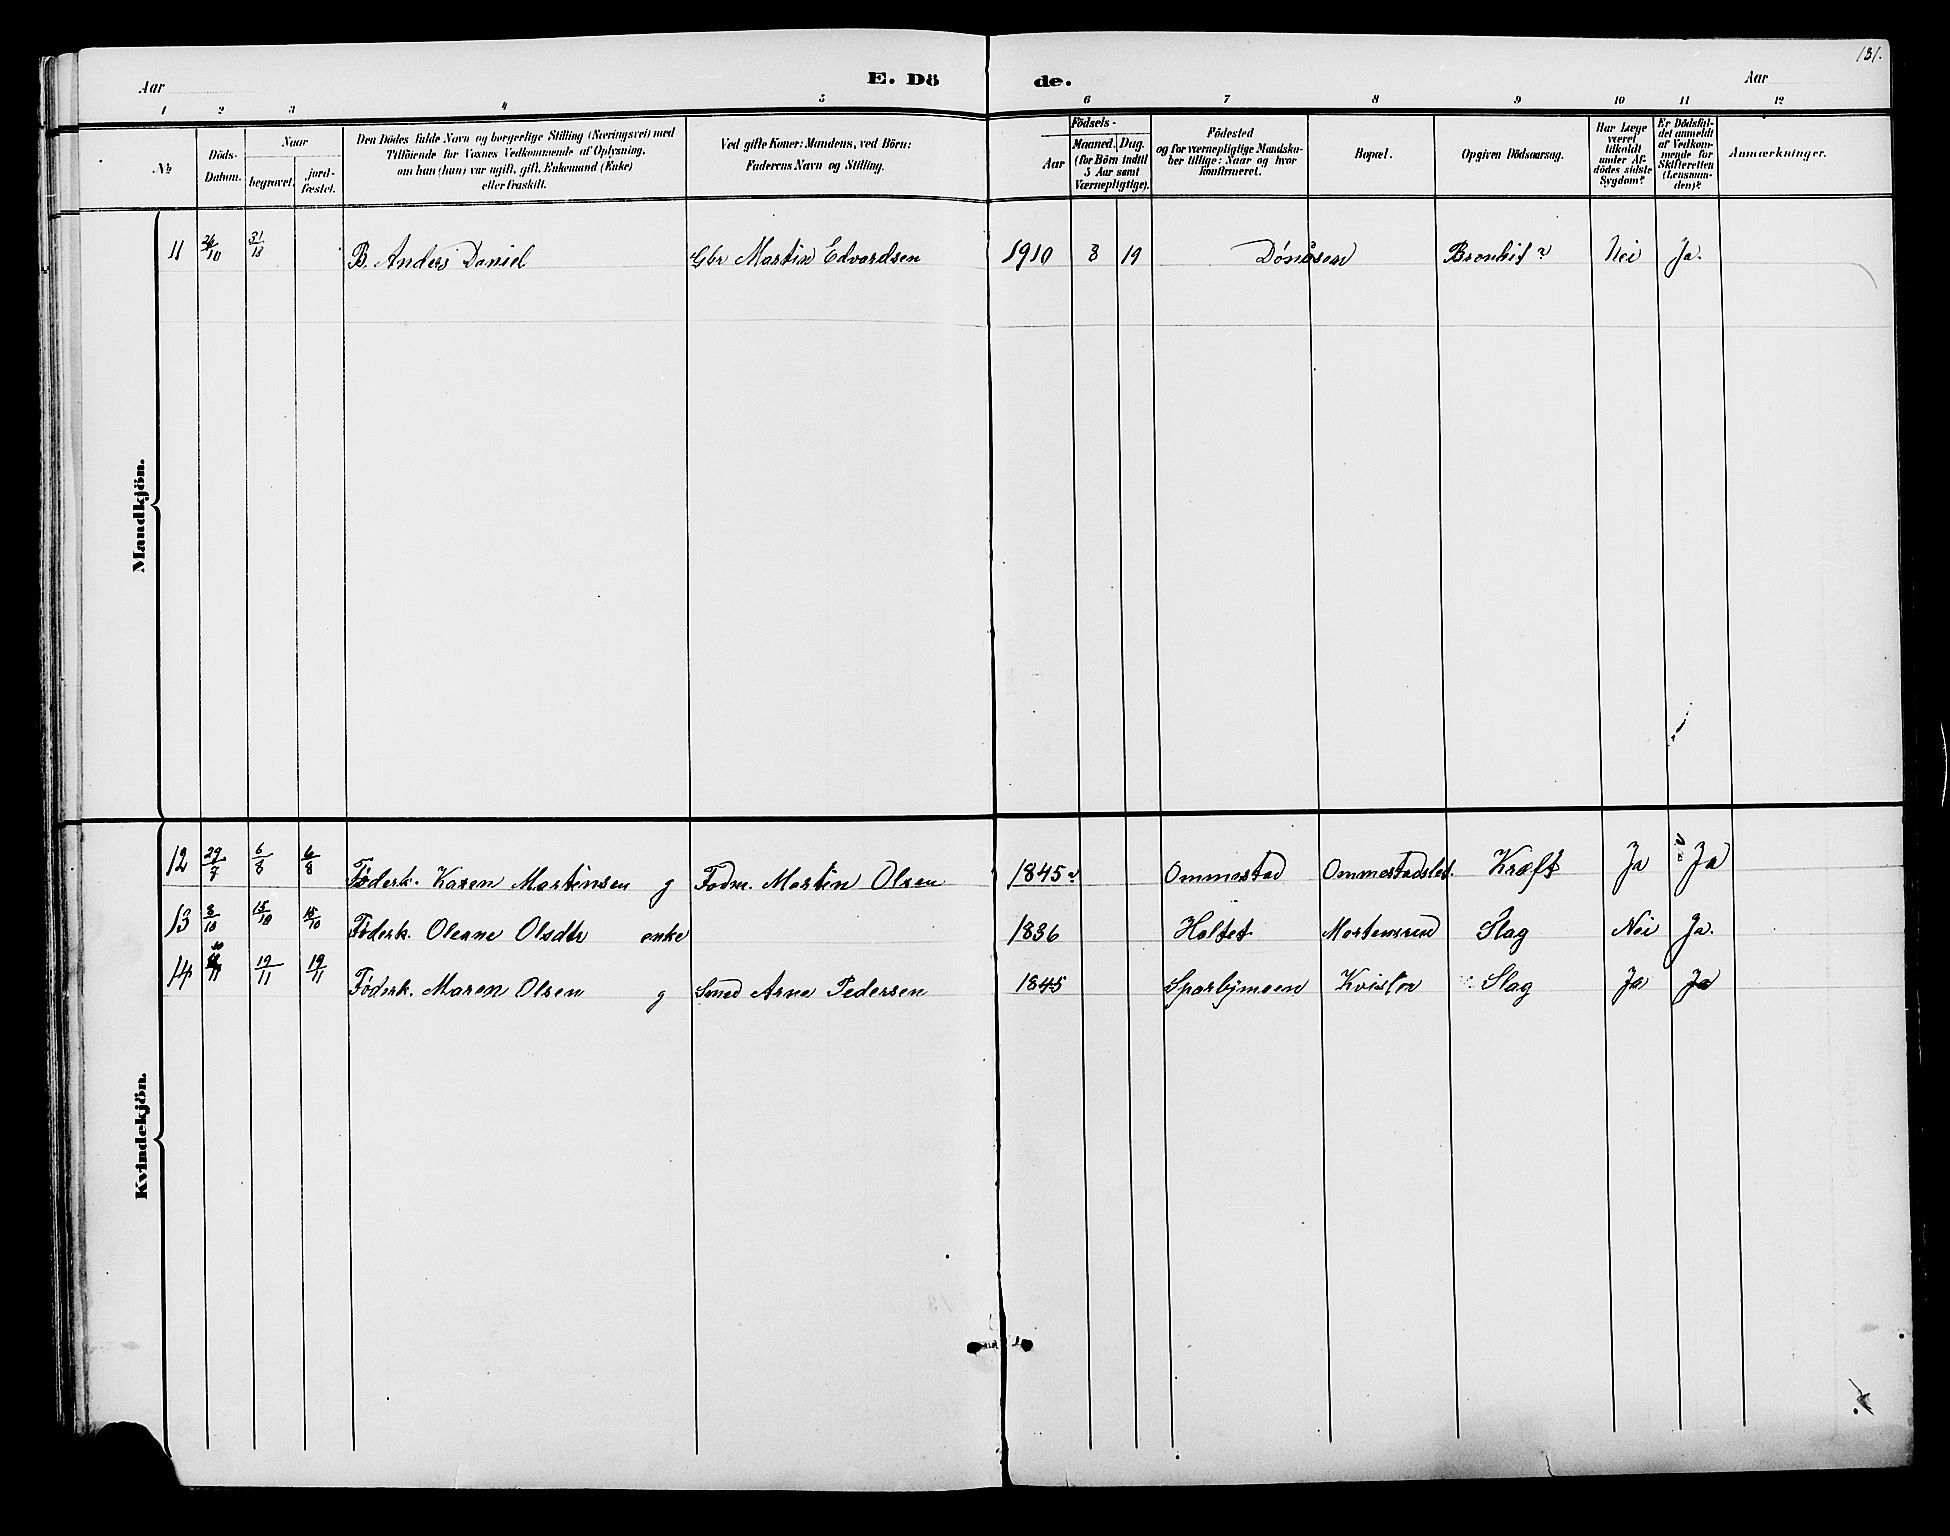 131.
Aar E. Dö de. Aar
1 2 3 4 5 6 7 8 9 10 11 12
№
Döds-Datum.
Naar
begravet.
jord-fæstet.
Den Dödes fulde Navn og borgerlige Stilling (Næringsvei) med
Tilföiende for Voxnes Vedkommende af Oplysning,
om han (hun) var ugift, gift, Enkemand (Enke)
eller fraskilt.
Ved gifte Koner: Mandens, ved Börn:
Faderens Navn og Stilling.
Födsels-
Aar
Maaned. Dag.
(for Börn indtil
5 Aar samt
Værnepligtige).
Födested
og for værnepligtige Mandska-
ber tillige: Naar og hvor
konfirmeret.
Bopæl.
Opgiven Dödsaarsag.
Har Læge
været
tilkaldt
under Af-
dödes sidste
Sygdom?
Er Dödsfal-
det anmeldt
af Vedkom-
mende for
Skifteretten
(Lensman-
den)?
Anmærkninger.
Mandkjön.
11 31/10 B. Anders Daniel Gbr Martin Edvardsen 1910 8 19 Dønåsen Bronkit ? Nei Ja.
Kvindekjön.
12 29/7 6/8 6/8 Føderk. Karen Martinsen g Fodm. Martin Olsen 1845 ? Ommestad Ommestadslet. Kræft Ja Ja
13 8/10 15/10 15/10 Føderk. Oleane Olsdtr enke 1836 Holtet Mortensrud Slag Nei Ja.
14 19/11 19/11 Føderk. Maren Olsen g Smed Arne Pedersen 1845 Sparbymoen Kvisler Slag Ja Ja